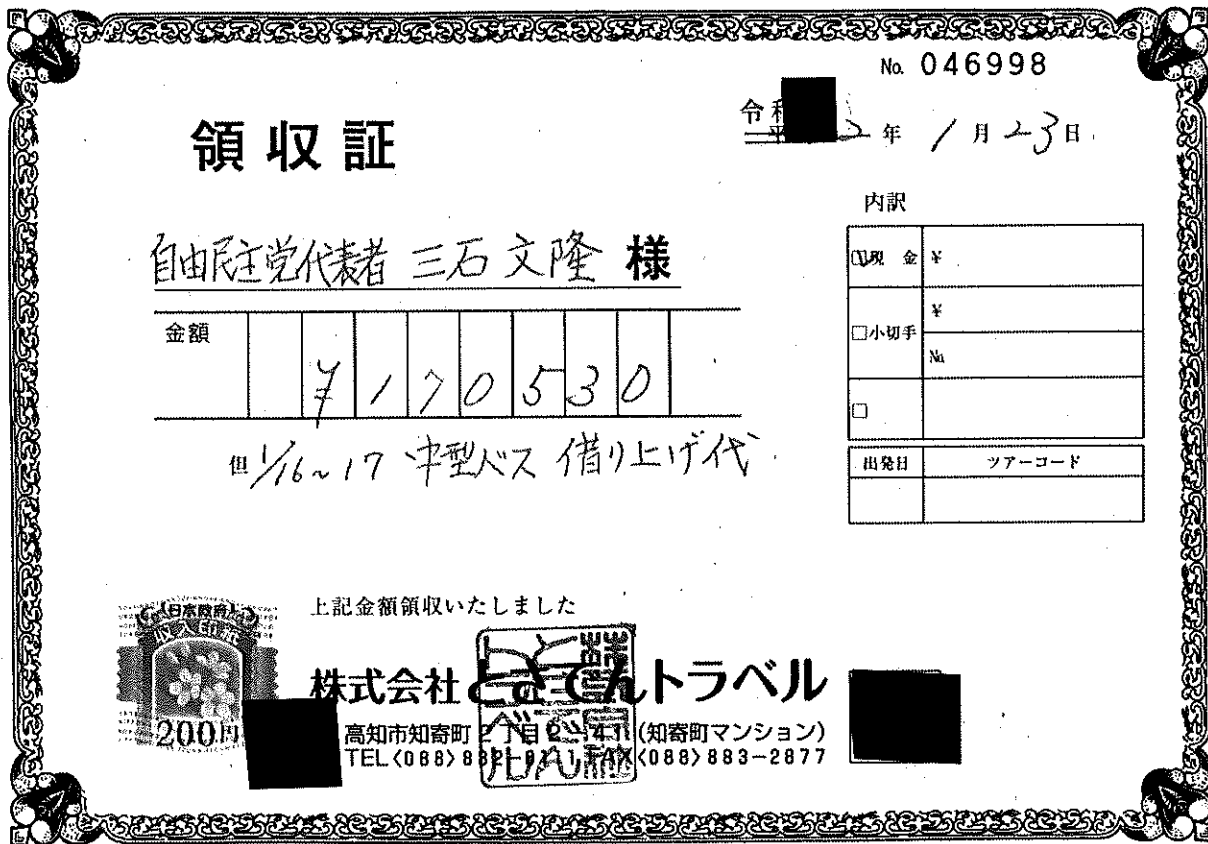 No. 046998
領収証
令和 2年 1月23日
自由民主党代表者 三石文隆 様
金額 ¥170530
但 1/16~17 中型バス 借り上げ代
内訳
現金 ¥
□小切手 ¥
No.
□
出発日 ツアーコード
上記金額領収いたしました
日本政府
収入印紙
200円
株式会社とさでんトラベル
高知市知寄町2丁目 (知寄町マンション)
TEL〈088〉882- FAX〈088〉883-2877